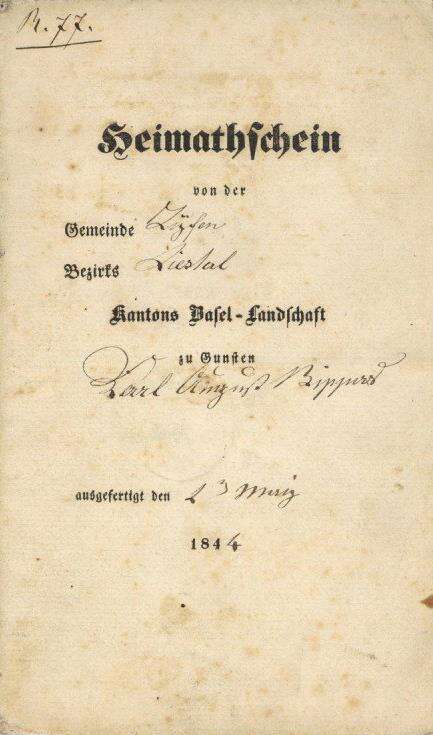 R. 77.
Heimathschein
von der
Gemeinde
Bezirks Liestal
Kantons Basel-Landschaft
zu Gunsten
Karl August
ausgefertigt den 23
1844